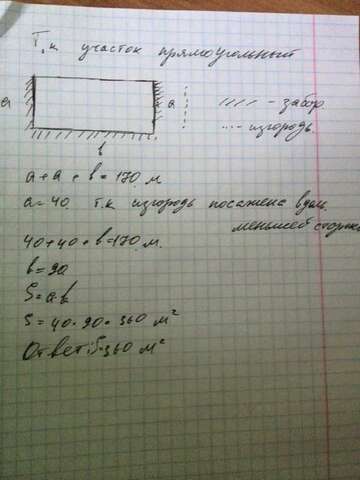 Т.к участок прямоугольный
a a //// - забор
...- изгородь
в
a + a + в = 170 м
a = 40. т.к изгородь посажена вдоль
меньшей стороны
40 + 40 + в = 170 м.
в = 90
S = a·в
S = 40 · 90 = 360 м²
Ответ: S=360 м²